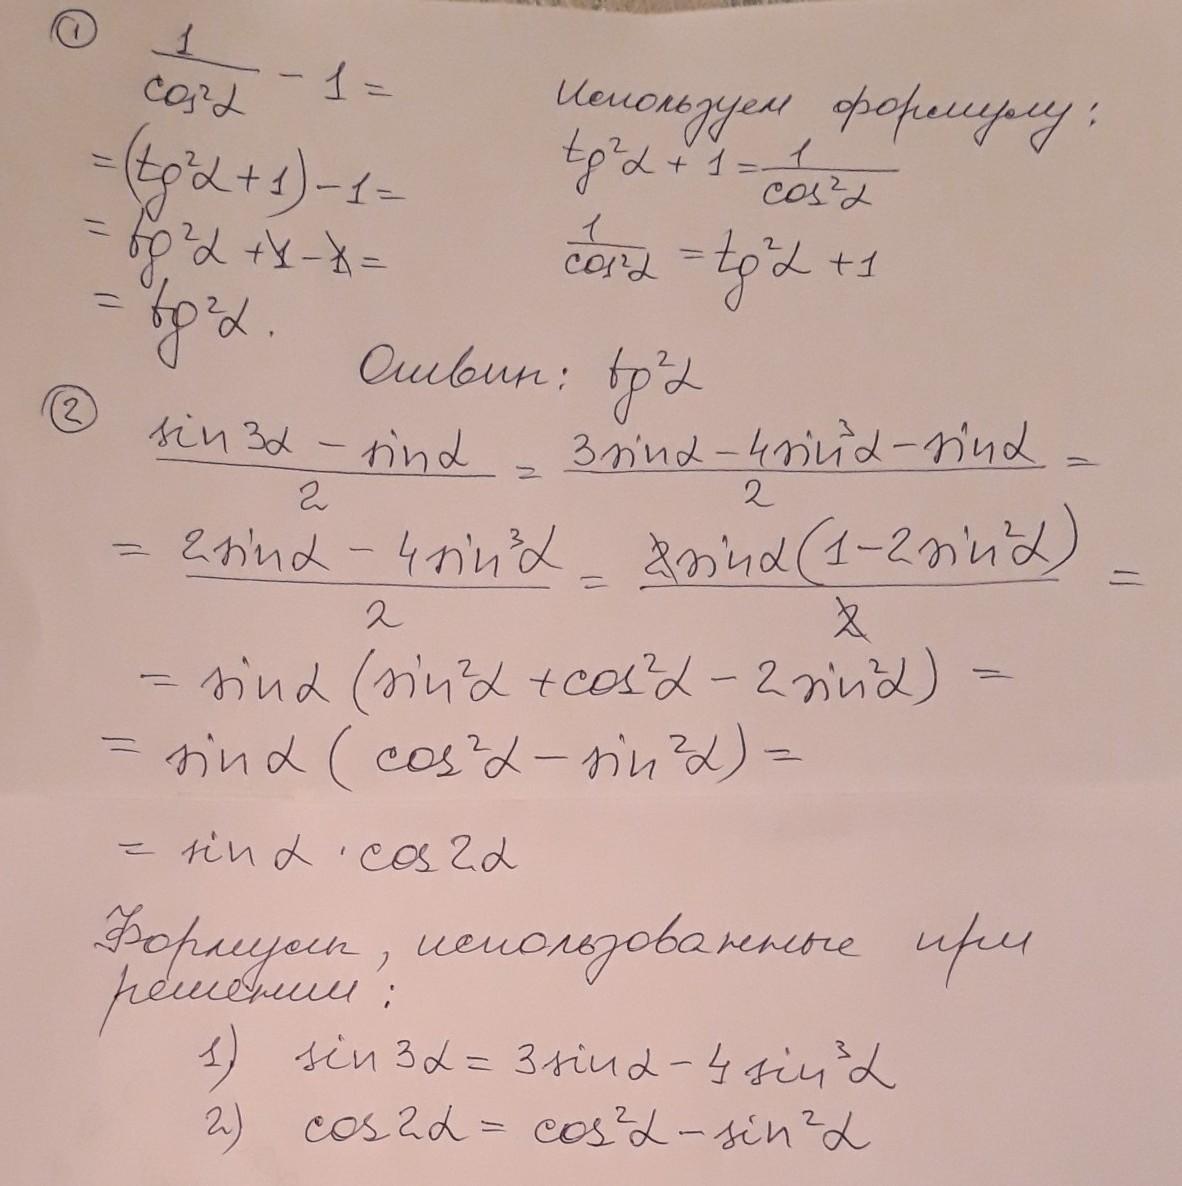 ① 1/cos²α − 1 =
Используем формулу:
= (tg²α + 1) − 1 =
tg²α + 1 = 1/cos²α
= tg²α + 1 − 1 =
1/cos²α = tg²α + 1
= tg²α.
Ответ: tg²α
② (sin3α − sinα)/2 = (3sinα − 4sin³α − sinα)/2 =
= (2sinα − 4sin³α)/2 = 2sinα(1 − 2sin²α)/2 =
= sinα (sin²α + cos²α − 2sin²α) =
= sinα ( cos²α − sin²α) =
= sinα · cos2α
Формулы, использованные при
решении:
1) sin3α = 3sinα − 4sin³α
2) cos2α = cos²α − sin²α